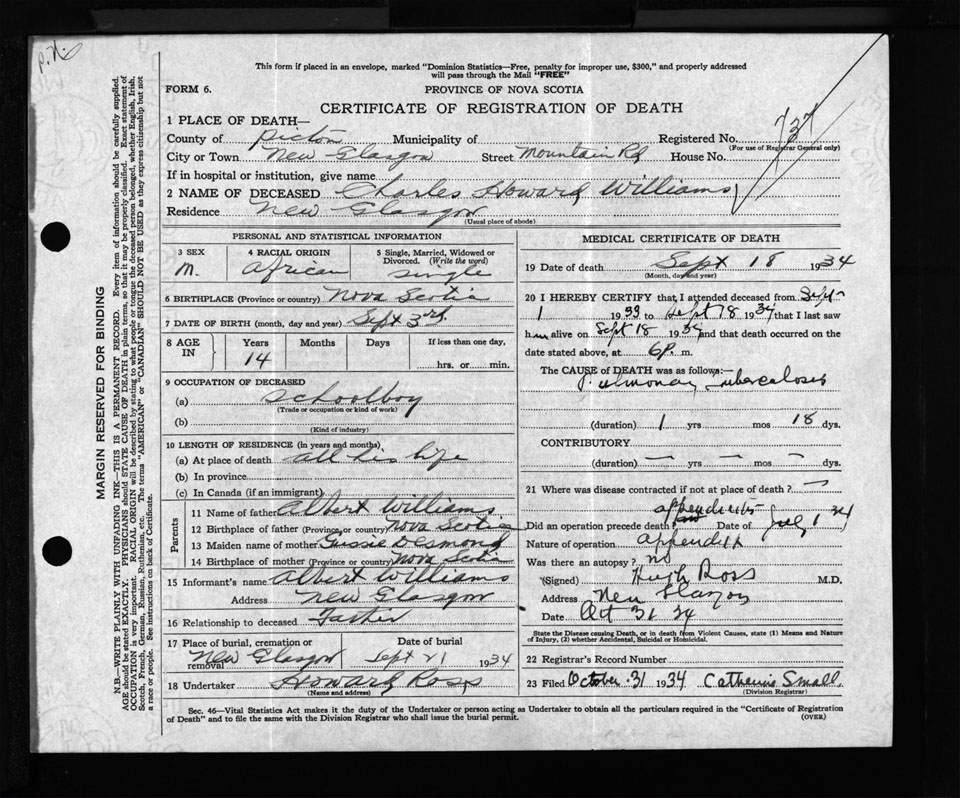 P.N.
This form if placed in an envelope, marked "Dominion Statistics—Free, penalty for improper use, $300," and properly addressed
will pass through the Mail "FREE"
FORM 6.
PROVINCE OF NOVA SCOTIA
CERTIFICATE OF REGISTRATION OF DEATH
1 PLACE OF DEATH—
County of Pictou Municipality of Registered No. 737
(For use of Registrar General only)
City or Town New Glasgow Street Mountain Rd House No.
If in hospital or institution, give name
2 NAME OF DECEASED Charles Howard Williams
Residence New Glasgow
(Usual place of abode)
PERSONAL AND STATISTICAL INFORMATION
3 SEX M. 4 RACIAL ORIGIN African 5 Single, Married, Widowed or Divorced. (Write the word) single
6 BIRTHPLACE (Province or country) Nova Scotia
7 DATE OF BIRTH (month, day and year) Sept 3rd.
8 AGE IN Years Months Days If less than one day,
14 hrs. or min.
9 OCCUPATION OF DECEASED
(a) Schoolboy
(Trade or occupation or kind of work)
(b)
(Kind of industry)
10 LENGTH OF RESIDENCE (in years and months)
(a) At place of death all his life
(b) In province
(c) In Canada (if an immigrant)
Parents
11 Name of father Albert Williams
12 Birthplace of father (Province or country) Nova Scotia
13 Maiden name of mother Gussie Desmond
14 Birthplace of mother (Province or country) Nova Scotia
15 Informant's name Albert Williams
Address New Glasgow
16 Relationship to deceased Father
17 Place of burial, cremation or removal New Glasgow Date of burial Sept 21 1934
18 Undertaker Howard Ross
(Name and address)
MEDICAL CERTIFICATE OF DEATH
19 Date of death Sept 18 1934
(Month, day and year)
20 I HEREBY CERTIFY that I attended deceased from Sept
1 1933 to Sept 18 1934 that I last saw
h im alive on Sept 18 1934 and that death occurred on the
date stated above, at 6 P. m.
The CAUSE of DEATH was as follows:—
Pulmonary Tuberculosis
(duration) 1 yrs mos 18 dys.
CONTRIBUTORY
(duration) — yrs — mos — dys.
21 Where was disease contracted if not at place of death? —
appendicitis
Did an operation precede death Date of July 1 34
Nature of operation appendix
Was there an autopsy? no
(Signed) Hugh Ross M.D.
Address New Glasgow
Date Oct 31 34
State the Disease causing Death, or in death from Violent Causes, state (1) Means and Nature
of Injury, (2) whether Accidental, Suicidal or Homicidal.
22 Registrar's Record Number
23 Filed October 31 1934 Catherine Small
(Division Registrar)
Sec. 46—Vital Statistics Act makes it the duty of the Undertaker or person acting as Undertaker to obtain all the particulars required in the "Certificate of Registration
of Death" and to file the same with the Division Registrar who shall issue the burial permit. (OVER)
MARGIN RESERVED FOR BINDING
N.B.—WRITE PLAINLY WITH UNFADING INK—THIS IS A PERMANENT RECORD. Every item of information should be carefully supplied.
AGE should be stated EXACTLY. PHYSICIANS should STATE CAUSE OF DEATH in plain terms, so that it may be properly classified. Exact statement of
OCCUPATION is very important. RACIAL ORIGIN will be described by stating to what people or tongue the deceased person belonged, whether English, Irish,
Scotch, French, German, Russian, Ruthenian, etc. The terms "AMERICAN" or "CANADIAN" SHOULD NOT BE USED as they express citizenship but not
a race or people. See instructions on back of Certificate.